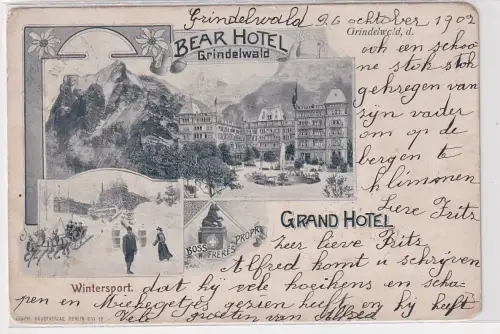 Grindelwald 26 ocktober 1902
Grindelwald, d.
BEAR HOTEL
Grindelwald
ooh een schoo
ne stok stok
gekregen van
zijn vader
om op de
bergen te
klimmen
Lere Frits
GRAND HOTEL
BOSS
FRÈRES
PROPR.
Wintersport.
heer lieve Frits
Alfred komt u schrijven
dat hij vele koeikens en scha-
pen en Miekegetjes gezien heeft en hij heeft
Vele groeten van Alfred